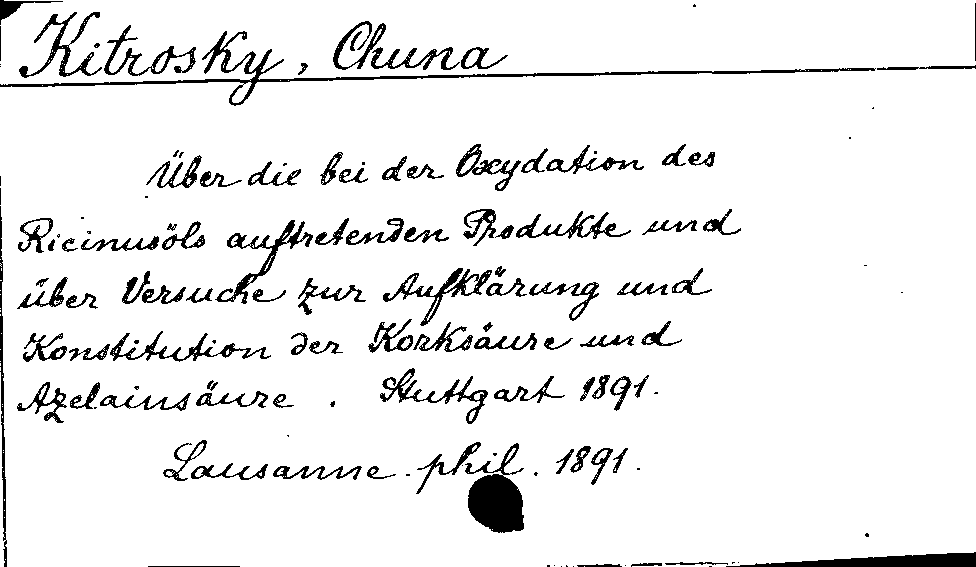 Kitrosky, Chuna
Über die bei der Oxydation des
Ricinusöls auftretenden Produkte und
über Versuche zur Aufklärung und
Konstitution der Korksäure und
Azelainsäure. Stuttgart 1891.
Lausanne. phil. 1891.